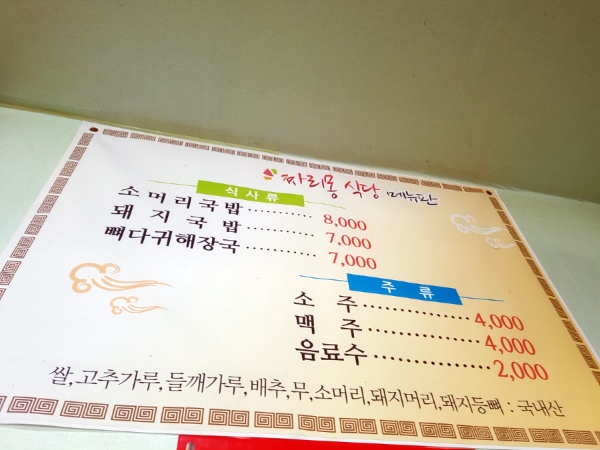 짜리몽 식당 메뉴판
식사류
소머리국밥 ............ 8,000
돼지국밥 ............ 7,000
뼈다귀해장국 ............ 7,000
주류
소주 ............... 4,000
맥주 ............... 4,000
음료수 ............... 2,000
쌀,고추가루,들깨가루,배추,무,소머리,돼지머리,돼지등뼈 : 국내산